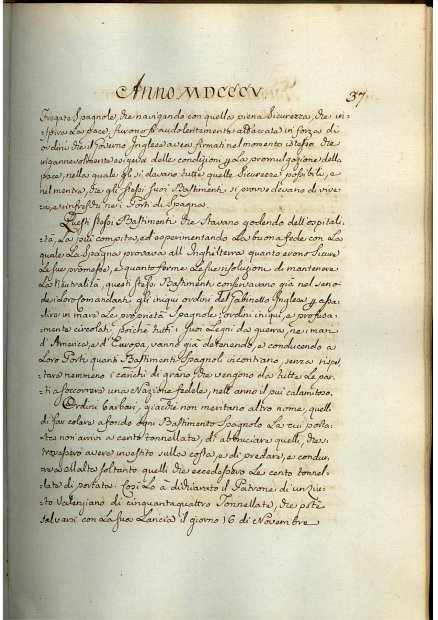 Anno MDCCCV.
37
Fregate Spagnole, che navigando con quella piena Sicurezza, che in-
spira La pace, furono fraudolentemente attaccate in forza di
ordini che il Governo Inglese aveva firmati nel momento istesso che
ingannevolmente esigeva delle condizioni per La promulgazione della
pace, nella quale gli si davano tutte quelle Sicurezze possibili, e
nel mentre, che gli stessi suoi Bastimenti si provvedevano di vive-
ri, e rinfreschi ne' i Porti di Spagna.
Questi stessi Bastimenti che stavano godendo dell'ospitali-
tà, La più compita, ed esperimentando La buona fede con La
quale La Spagna provava all'Inghilterra quanto erono Sicure
Le sue promesse, e quanto ferme Le sue risoluzioni di mantenere
La Neutralità, questi stessi Bastimenti conservavano già nel seno
de i Loro Comandanti gli iniqui ordini del Gabinetto Inglese per assa-
lire in mare Le proprietà Spagnole: ordini iniqui, e profusa-
mente circolati, poiché tutti i suoi Legni da guerra, ne i mari
d'America, e d'Europa, vanno già detenendo, e conducendo a
Loro Porti quanti Bastimenti Spagnoli incontrano, senza rispet-
tare nemmeno i carichi di grano, che vengono da tutte Le par-
ti a soccorrere una Nazione fedele, nell'anno il più calamitoso.
Ordini barbari, giacché non meritano altro nome, quelli
di far colare a fondo ogni Bastimento Spagnolo La cui porta-
ta non arrivi a cento tonnellate, di abbruciare quelli, che
trovassero avere investito sulla costa, e di predare, e condur-
re a Malta soltanto quelli che eccedessero Le cento tonnel-
late di portata. Così Lo à dichiarato il Patrone di un
Valenziano di cinquantaquattro Tonnellate, che potè
salvarsi con La sua Lancia il giorno 16 di Novembre